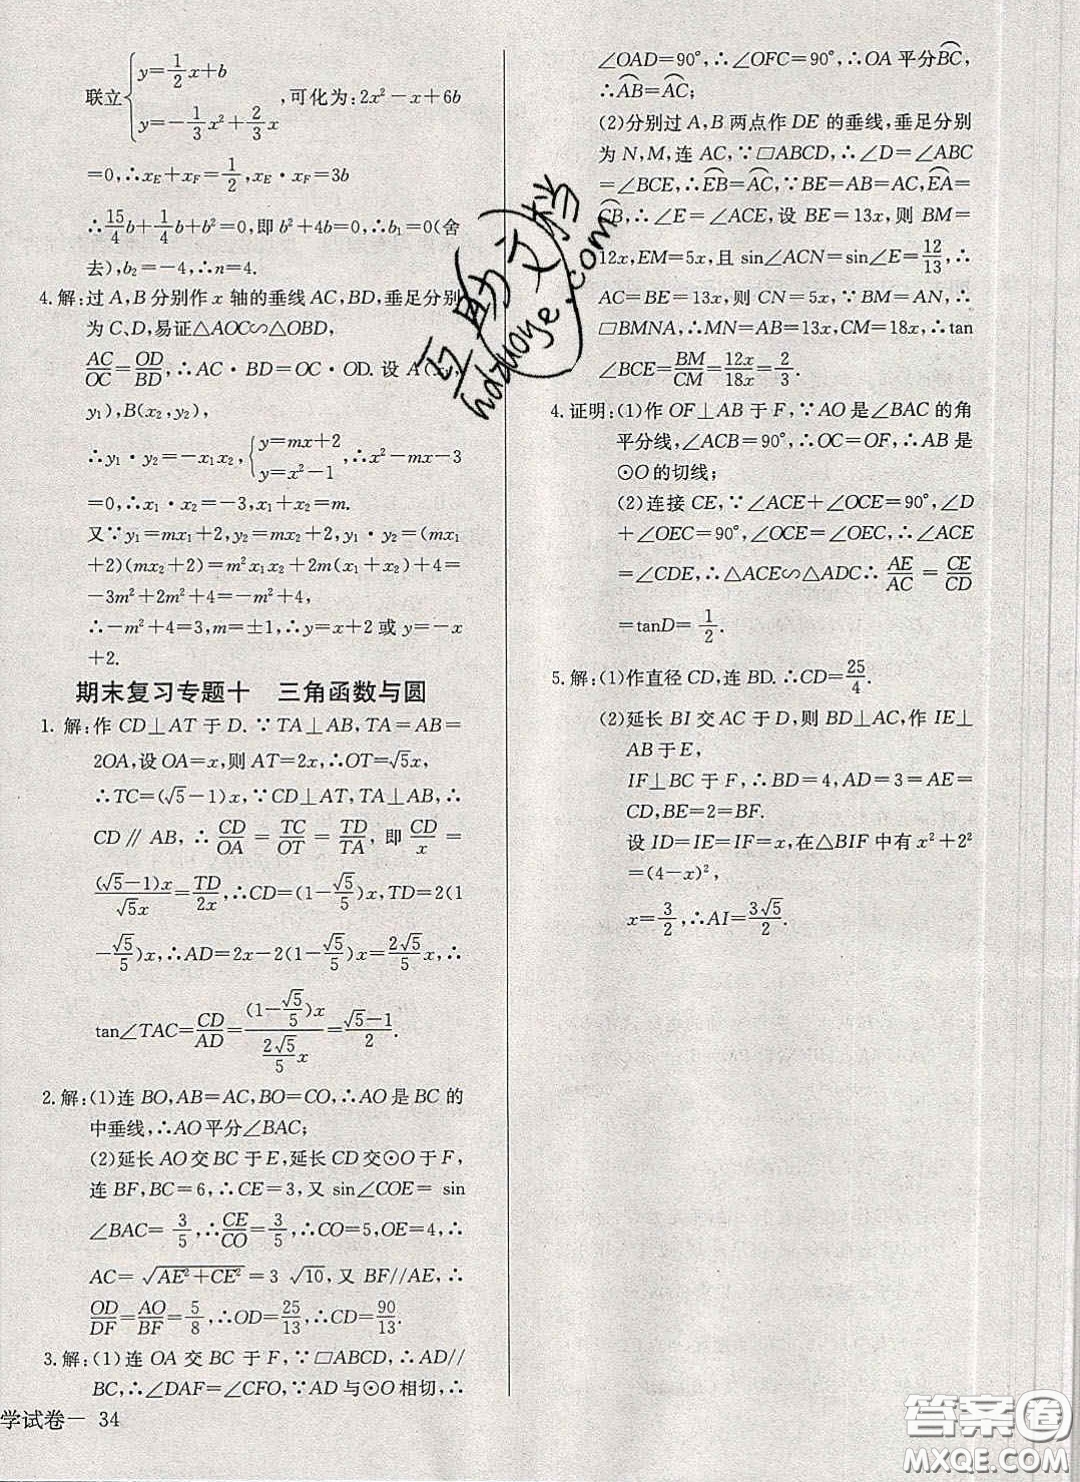 联立{y=1/2x+b
y=-1/3x²+2/3x ,可化为:2x²-x+6b
=0,∴x_E+x_F=1/2,x_E·x_F=3b
∴15/4b+1/4b+b²=0,即b²+4b=0,∴b₁=0(舍
去),b₂=-4,∴n=4.
4.解:过A,B分别作x轴的垂线AC,BD,垂足分别
为C、D,易证△AOC∽△OBD,
AC/OC=OD/BD,∴AC·BD=OC·OD.设A(
y₁),B(x₂,y₂),
∴y₁·y₂=-x₁x₂,{y=mx+2
y=x²-1 ,∴x²-mx-3
=0,∴x₁·x₂=-3,x₁+x₂=m.
又∵y₁=mx₁+2,y₂=mx₂+2,∴y₁y₂=(mx₁
+2)(mx₂+2)=m²x₁x₂+2m(x₁+x₂)+4=
-3m²+2m²+4=-m²+4,
∴-m²+4=3,m=±1,∴y=x+2或y=-x
+2.
期末复习专题十 三角函数与圆
1.解:作CD⊥AT于D.∵TA⊥AB,TA=AB=
2OA,设OA=x,则AT=2x,∴OT=√5x,
∴TC=(√5-1)x,∵CD⊥AT,TA⊥AB,∴
CD∥AB,∴CD/OA=TC/OT=TD/TA,即CD/x=
(√5-1)x/√5x=TD/2x,∴CD=(1-√5/5)x,TD=2(1
-√5/5)x,∴AD=2x-2(1-√5/5)x=2√5/5x,
tan∠TAC=CD/AD=(1-√5/5)x/(2√5/5 x)=(√5-1)/2.
2.解:(1)连BO,AB=AC,BO=CO,∴AO是BC的
中垂线,∴AO平分∠BAC;
(2)延长AO交BC于E,延长CD交⊙O于F,
连BF,BC=6,∴CE=3,又sin∠COE=sin
∠BAC=3/5,∴CE/CO=3/5,∴CO=5,OE=4,∴
AC=√(AE²+CE²)=3√10,又BF//AE,∴
OD/DF=AO/BF=5/8,∴OD=25/13,∴CD=90/13.
3.解:(1)连OA交BC于F,∵□ABCD,∴AD//
BC,∴∠DAF=∠CFO,∵AD与⊙O相切,∴
学试卷一 34
∠OAD=90°,∴∠OFC=90°,∴OA平分BC⌒,
∴AB⌒=AC⌒;
(2)分别过A,B两点作DE的垂线,垂足分别
为N,M,连AC,∵□ABCD,∴∠D=∠ABC
=∠BCE,∴EB⌒=AC⌒,∵BE=AB=AC,EA⌒=
CB⌒,∴∠E=∠ACE,设BE=13x,则BM=
12x,EM=5x,且sin∠ACN=sin∠E=12/13,∴
AC=BE=13x,则CN=5x,∵BM=AN,∴
□BMNA,∴MN=AB=13x,CM=18x,∴tan
∠BCE=BM/CM=12x/18x=2/3.
4.证明:(1)作OF⊥AB于F,∵AO是∠BAC的角
平分线,∠ACB=90°,∴OC=OF,∴AB是
⊙O的切线;
(2)连接CE,∵∠ACE+∠OCE=90°,∠D
+∠OEC=90°,∠OCE=∠OEC,∴∠ACE
=∠CDE,∴△ACE∽△ADC∴AE/AC=CE/CD
=tanD=1/2.
5.解:(1)作直径CD,连BD.∴CD=25/4.
(2)延长BI交AC于D,则BD⊥AC,作IE⊥
AB于E,
IF⊥BC于F,∴BD=4,AD=3=AE=
CD,BE=2=BF.
设ID=IE=IF=x,在△BIF中有x²+2²
=(4-x)²,
x=3/2,∴AI=3√5/2.
互助文档
hdzuoye.com
答案圈
MXQE.COM